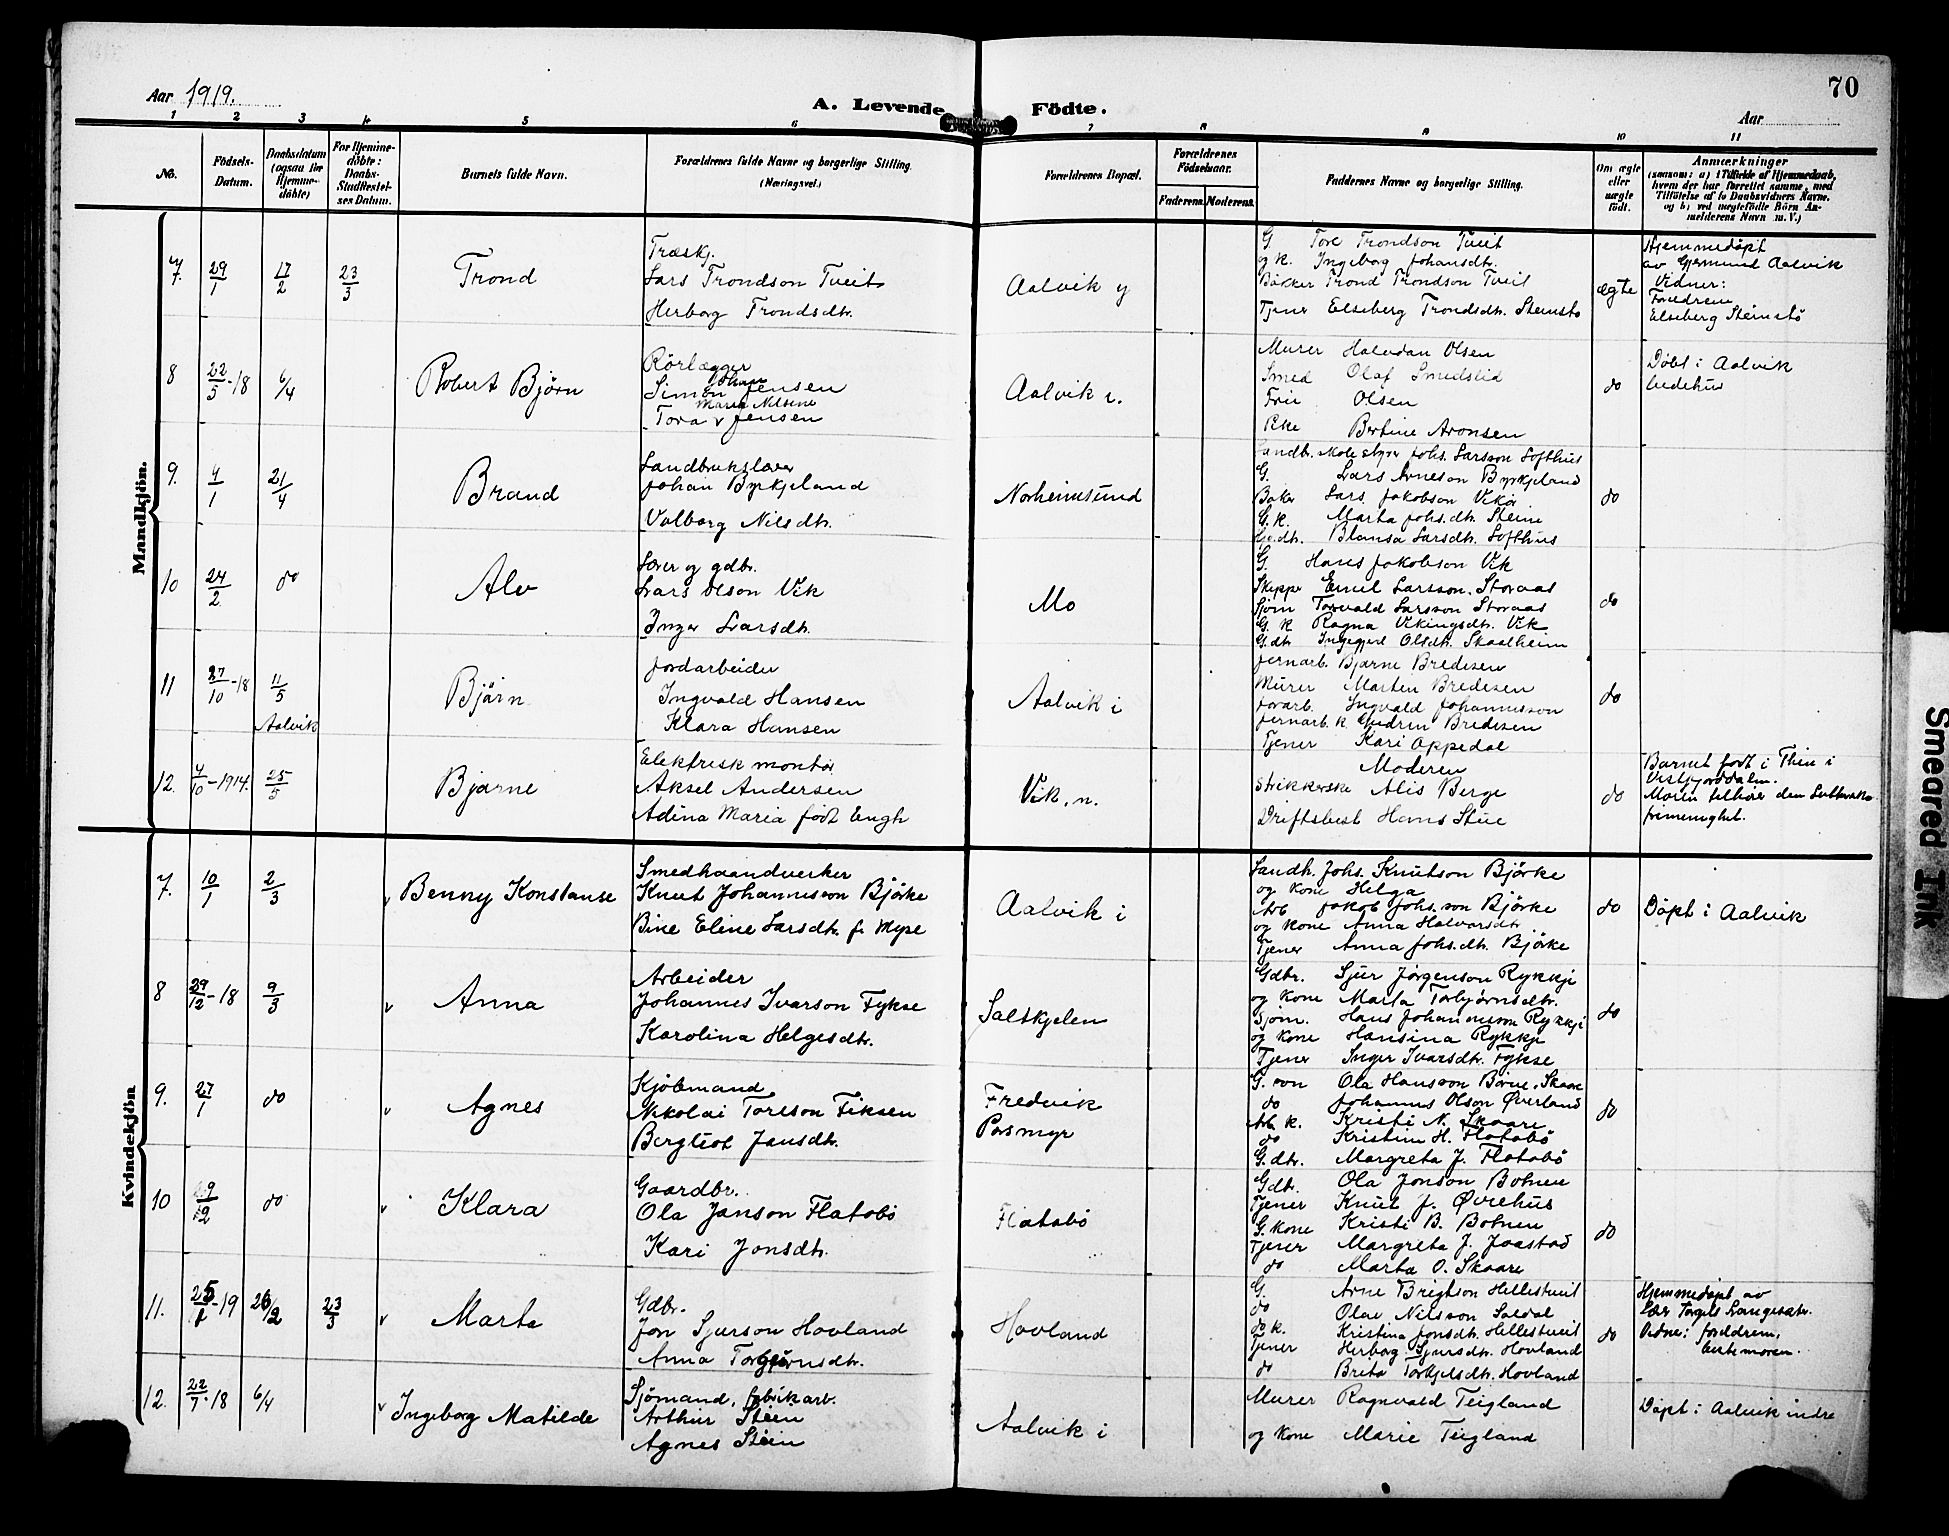 70
Aar 1919.
A. Levende Födte.
Aar
1 2 3 4 5 6 7 8 9 10 11
No.
Födsels-Datum.
Daabsdatum (ogsaa for Hjemme-døbte)
For Hjemme-døbte: Daabs-Stadfæstel-ses Datum.
Barnets fulde Navn.
Forældrenes fulde Navne og borgerlige Stilling. (Næringsvei.)
Forældrenes Bopæl.
Forældrenes Födselsaar.
Faderens. Moderens.
Faddernes Navne og borgerlige Stilling.
Om ægte eller uægte født.
Anmærkninger
(saasom: a) i Tilfælde af Hjemmedaab,
hvem der har forrettet samme, med
Tilföielse af to Daabsvidners Navne.
og b) ved uægtefödte Börn An-
melderens Navn m. V.)
Mandkjön.
7. 29/1 17/2 23/3 Trond
Træskj.
Lars Trondson Tveit
Herborg Trondsdtr.
Aalvik y
G. Tore Trondson Tveit
og k. Ingeborg Johansdtr.
Bakker Trond Trondson Tveit
Tjener Elseberg Trondsdtr. Steinstø
ægte
Hjemmedøpt
av Gjermund Aalvik
Vidner:
Foreldrene
Elseberg Steinstø
8 22/5-18 6/4 Robert Bjørn
Rörlægger
Simon Johan Jensen
Maria Nilsine
Tora v Jensen
Aalvik i.
Murer Halvdan Olsen
Smed Olaf Smedslid
Frie Olsen
Pike Bertine Aronsen
do
Døbt i Aalvik
bedehus
9. 4/1 21/4 Brand
Landbrukslærer
Johan Byrkjeland
Valborg Nilsdtr.
Norheimsund
Landbr. Johs. Larsson Lofthus
G. Lars Arneson Byrkjeland
Baker Lars Jakobson Vikør
G. k. Marta Johs.dtr. Steine
Gr.dtr. Blansa Larsdtr. Lofthus
do
10 24/2 do Alv
Lærer og gdbr.
Lars Olson Vik
Inger Larsdtr.
Mo
G. Hans Jakobson Vik
Skipper Emil Larsson Storaas
Sjöm Torvald Larsson Storaas
G. k Ragna Vikingsdtr. Vik
G.dtr Ingegjerd Olsdtr. Skaalheim
do
11 27/10-18 11/5 Aalvik Bjørn
Jordarbeider
Ingvald Hansen
Klara Hansen
Aalvik i
Jernarb. Bjarne Bredesen
Murer Marten Bredesen
Jorarb. Ingvald Johannesson
Jernarb. k. Gudrun Bredesen
Tjener Kari Appedal
do
12. 4/10-1914. 25/5 Bjarne
Elektrisk montör
Aksel Andersen
Adina Maria født Engh
Vik, n.
Moderen
Strikkerske Alis Berge
Driftsbest Hans Stue
do
Barnet født i Thin i
Vestfjorddalen.
Moren tilhører den Lutherske
frimenighet.
Kvindekjön
7. 10/1 2/3 Benny Konstanse
Smedhaandverker
Knut Johannesson Bjørke
Bine Eline Larsdtr. f. Myse
Aalvik i
Landh. Johs. Knutson Bjørke
og kone Helga
Arb Jakob Johs.son Bjørke
og kone Anna Halvorsdtr
Tjener Anna Johs.dtr. Bjørke
do
Døpt i Aalvik
8 29/12-18 9/3 Anna
Arbeider
Johannes Ivarson Fykse
Karolina Helgesdtr.
Saltkjelen
Gdbr. Sjur Jørgenson Rykkje
og kone Marta Torbjørnsdtr.
Sjøm. Hans Johannesson Rykkje
og kone Hansina Rykkje
Tjener Inger Ivarsdtr. Fykse
do
9. 27/1 do Agnes
Kjöbmand
Nikolai Torleson Fiksen
Bergliot Jansdtr.
Fredvik
Porsmyr
G. søn Ola Hansson Börve, Skaare
do Johannes Olson Øverland
Arb k. Kristi N. Skaare
do Kristine H. Flatabö
G. dtr. Margreta J. Flatabö
do
10 do Klara
Gaardbr.
Ola Janson Flatabö
Kari Jonsdtr.
Flatabö
Gdbr. Ola Jonson Botnen
Tjener Knut J. Øvrehus
G. kone Kristi B. Botnen
Tjener Margreta J. Jaastad
do Marta O. Skaare
do
11. 25/1-19 26/2 23/3 Marta
Gdbr.
Jon Sjurson Hovland
Anna Torbjørnsdtr.
Hovland
G. Arne Brigtson Hellestveit
do Olav Nilsson Soldal
do k. Kristina Jonsdtr. Hellestveit
Tjener Herborg Sjursdtr. Hovland
do Brita Torkjelsdtr. Hovland
do
Hjemmedøpt av
Lær Torgils Langesæter.
Vidne: foreldrene,
bestemoren.
12. 22/7-18 6/4 Ingeborg Matilde
Sjömand, fabrikarb.
Arthur Steen
Agnes Steen
Aalvik i
Murer Ragnvald Teigland
og kone Marie Teigland
Døpt i Aalvik indre
Smeared Ink